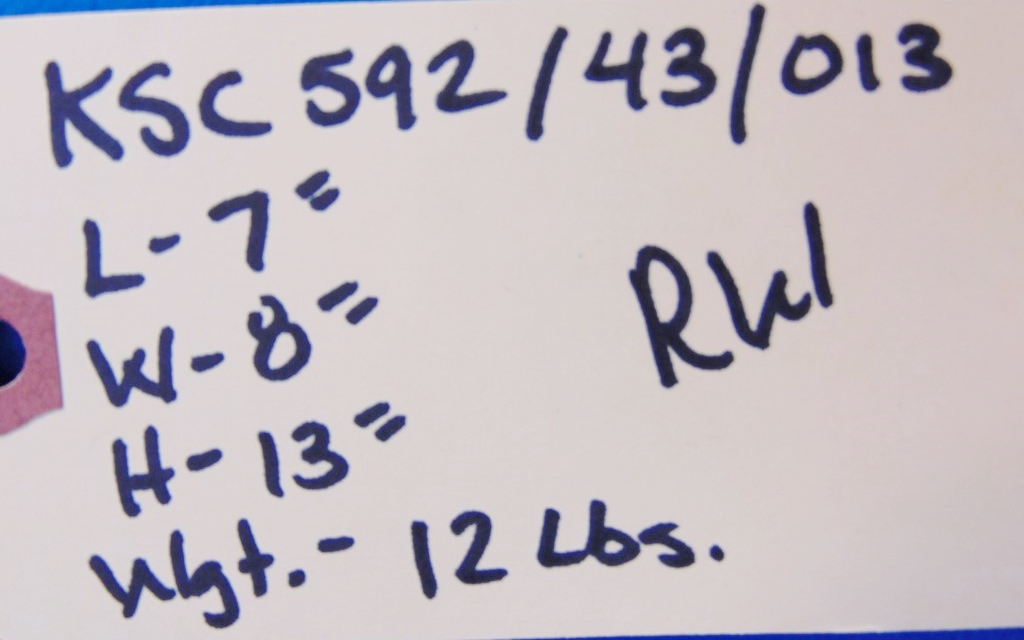 KSC 592/43/013
L-7"
W-8"
H-13"
Wgt.- 12 Lbs.